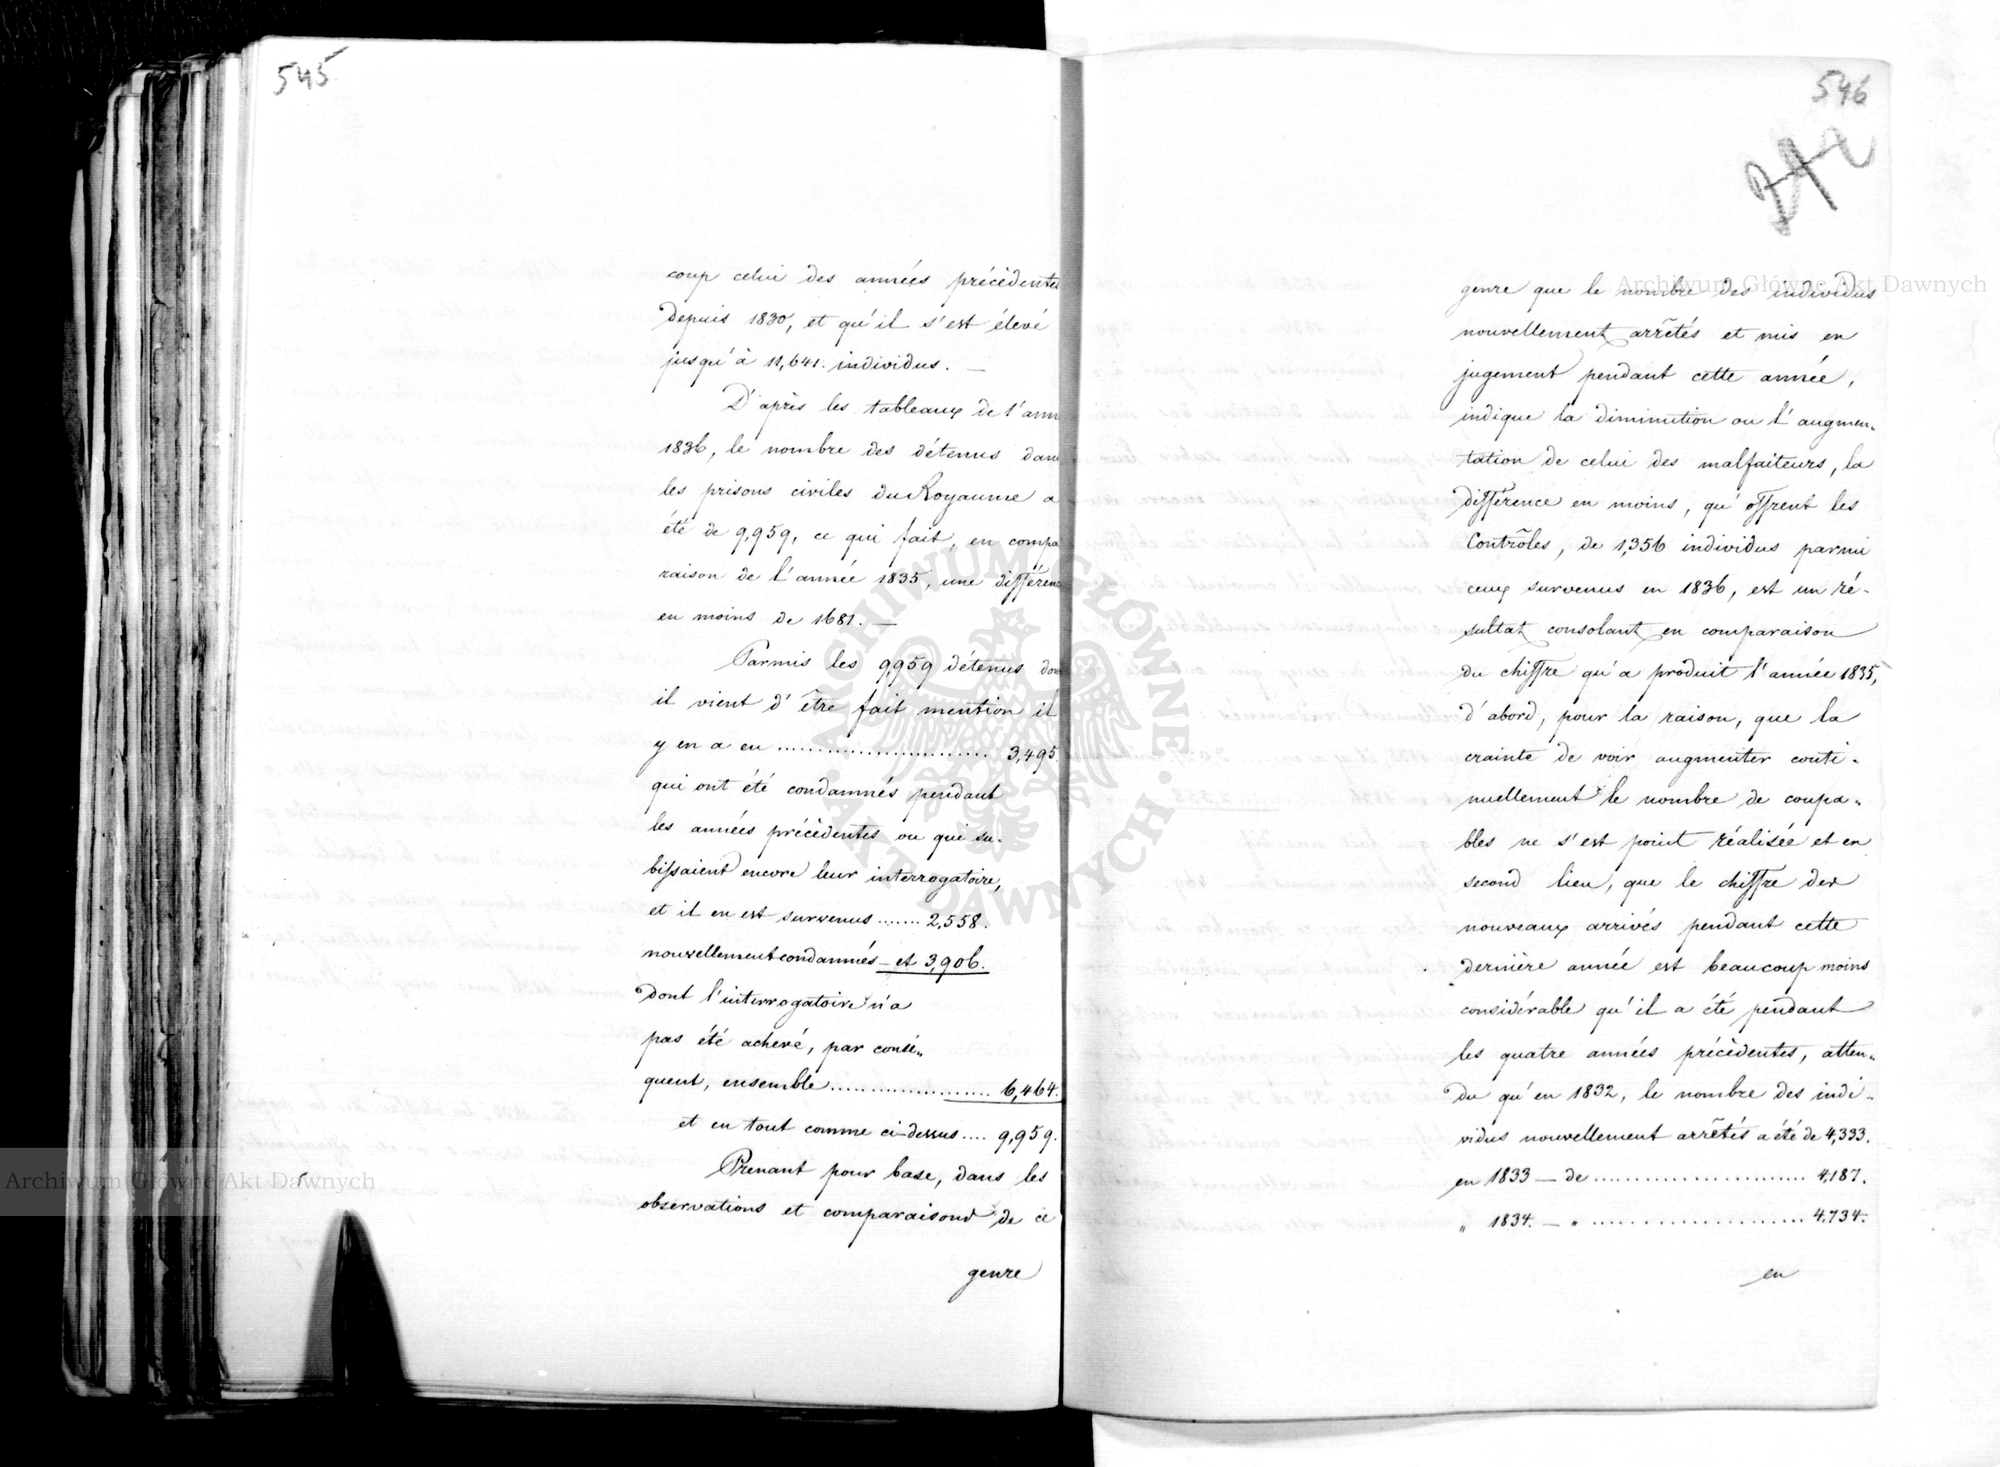 545
coup celui des années précédentes
depuis 1830, et qu'il s'est élevé
jusqu'à 11,641. individus. —
D'après les tableaux de l'ann
1836, le nombre des détenus dans
les prisons civiles du Royaume a
été de 9,959, ce qui fait, en compa
raison de l'année 1835, une différenc
en moins de 1681. —
Parmis les 9,959 détenus don
il vient d'être fait mention il
y en a eu ........................ 3,495.
qui ont été condamnés pendant
les années précédentes ou qui su-
bissaient encore leur interrogatoire,
et il en est survenus ....... 2,558.
nouvellement condamnés — et 3,906.
dont l'interrogatoire n'a
pas été achevé, par consé„
quent, ensemble .................... 6,464.
et en tout comme ci-dessus .... 9,959.
Prenant pour base, dans les
observations et comparaisons de ce
genre
546
242
genre que le nombre des individus
nouvellement arrêtés et mis en
jugement pendant cette année,
indique la diminution ou l'augmen„
tation de celui des malfaiteurs, la
différence en moins, qu'offrent les
Contrôles, de 1,356 individus parmi
ceux survenus en 1836, est un ré-
sultat consolant en comparaison
du chiffre qu'a produit l'année 1835,
d'abord, pour la raison, que la
crainte de voir augmenter conti-
nuellement le nombre de coupa„
bles ne s'est point réalisée et en
second lieu, que le chiffre des
nouveaux arrivés pendant cette
dernière année est beaucoup moins
considérable qu'il a été pendant
les quatre années précédentes, atten„
du qu'en 1832, le nombre des indi-
vidus nouvellement arrêtés a été de 4,333.
en 1833 — de ........................ 4,187.
„ 1834. — „ ........................ 4,734.
en
Archiwum Główne Akt Dawnych
Archiwum Główne Akt Dawnych
ARCHIWUM GŁÓWNE AKT DAWNYCH